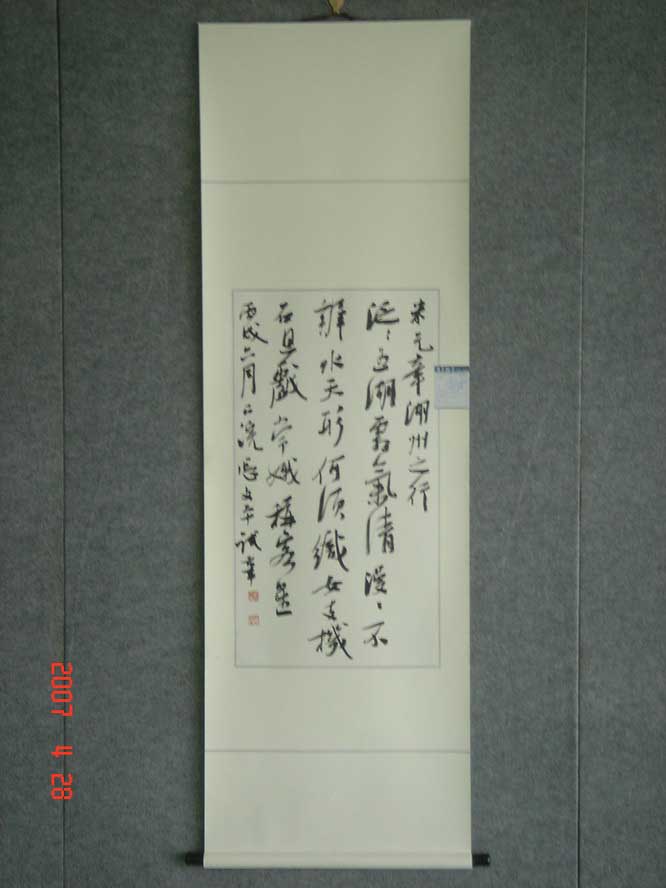 米元章湖州之行
泛泛五湖霜氣清漫漫不
辨水天形何須織女支機
石且戲常娥稱客星
丙戌六月
2007 4 28